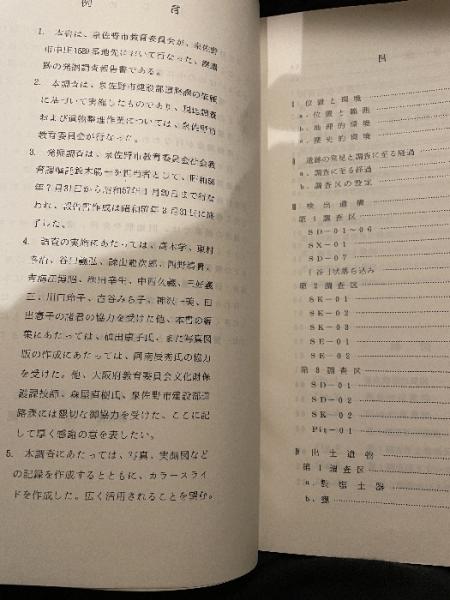 例 言
1. 本書は、泉佐野市教育委員会が、泉佐野
市中庄1589番地先において行なった、
跡の発掘調査報告書である。
2. 本調査は、泉佐野市建設部道路課の依頼
に基づいて実施したものであり、現地調査
および遺物整理作業については、泉佐野市
教育委員会が行なった。
3. 発掘調査は、泉佐野市教育委員会社会教
育課嘱託鈴木陽一を担当者として、昭和56
年7月31日から昭和57年1月20日まで行な
われ、報告書作成は昭和57年3月31日に終
了した。
4. 調査の実施にあたっては、高木学、東村
谷口義弘、
三、川口玲子、吉谷みち子、神沢一美、
出恵子の諸君の協力を受けた他、本書の編
集にあたっては、 氏、また写真図
版の作成にあたっては、阿南辰秀氏の協力
を受けた。他、大阪府教育委員会文化財保
護課技師、森屋直樹氏、泉佐野市建設部道
路課には懇切な御協力を受けた。ここに記
して厚く感謝の意を表したい。
5. 本調査にあたっては、写真、実測図など
の記録を作成するとともに、カラースライ
ドを作成した。広く活用されることを望む。
目
Ⅰ 位置と環境
a. 位置と範囲
b. 地理的環境
c. 歴史的環境
Ⅱ 遺跡の発見と調査に至る経過
a. 調査に至る経過
b. 調査区の設定
Ⅲ 検出遺構
第1調査区
SD-01~06
SX-01
SD-07
谷状落ち込み
第2調査区
SK-01
SK-02
SK-03
SE-01
SD-02
第3調査区
SD-01
SD-02
SK-02
Pit-01
Ⅳ 出土遺物
第1調査区
a. 製塩土器
b. 甕